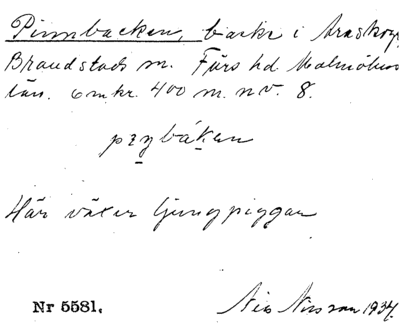 Pinnbacken, backe i Araskoga
Brandstads sn. Färs hd Malmöhus
län. omkr. 400 m. nv. 8.
Här växer ljungpiggar
Nr 5581. Nils Nilsson 1934.